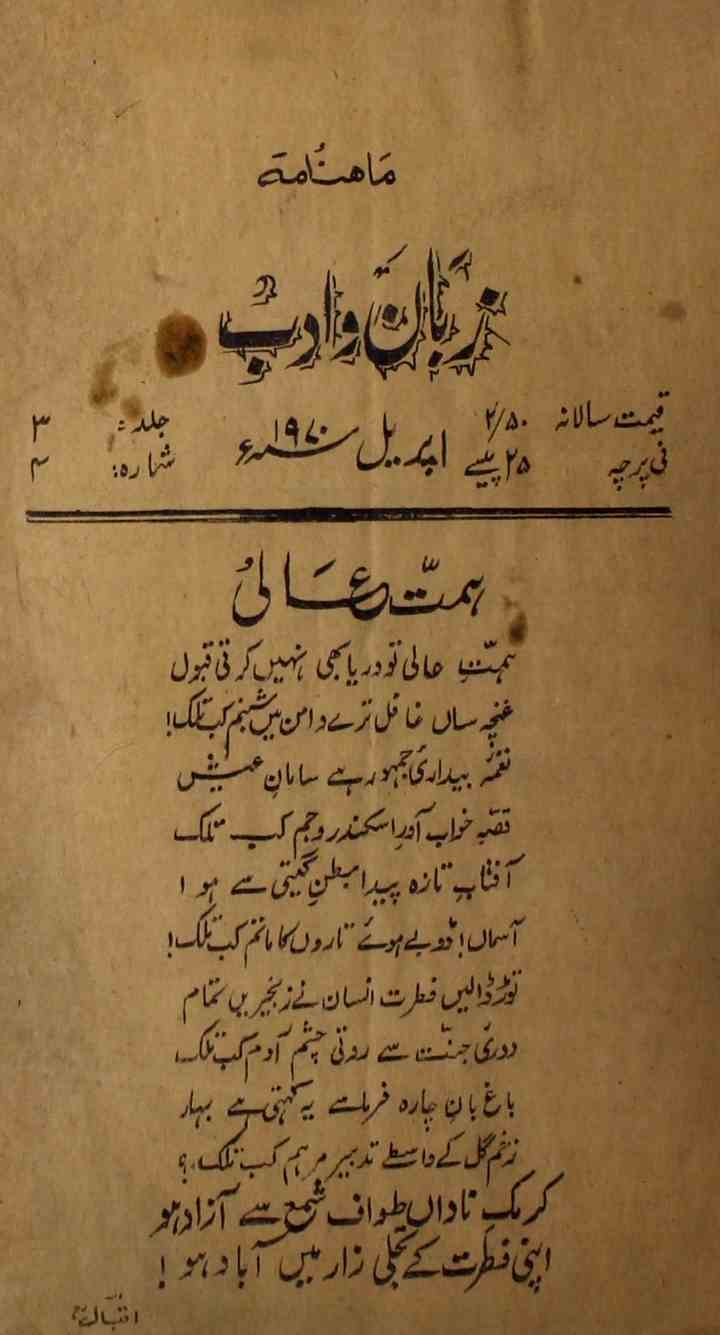 ماہنامہ
زبان و ادب
قیمت سالانہ ۲/۵۰
فی پرچہ ۲۵ پیسے
اپریل ۱۹۷۰ء
جلد: ۳
شمارہ: ۴
ہمت عالی
ہمتِ عالی تو دریا بھی نہیں کرتی قبول
غنچہ ساں غافل ترے دامن میں شبنم کب تلک!
نغمۂ بیداریٔ جمہور ہے سامانِ عیش
قصۂ خواب آور اسکندر و جم کب تلک
آفتابِ تازہ پیدا بطنِ گیتی سے ہوا
آسماں! ڈوبے ہوئے تاروں کا ماتم کب تلک!
توڑ ڈالیں فطرت انسان نے زنجیریں تمام
دوریٔ جنّت سے روتی چشمِ آدم کب تلک
باغبانِ چارہ فرما سے یہ کہتی ہے بہار
زخمِ گل کے واسطے تدبیر مرہم کب تلک؟
کرمکِ ناداں طواف شمع سے آزاد ہو
اپنی فطرت کے تجلی زار میں آباد ہو!
اقبالؒ